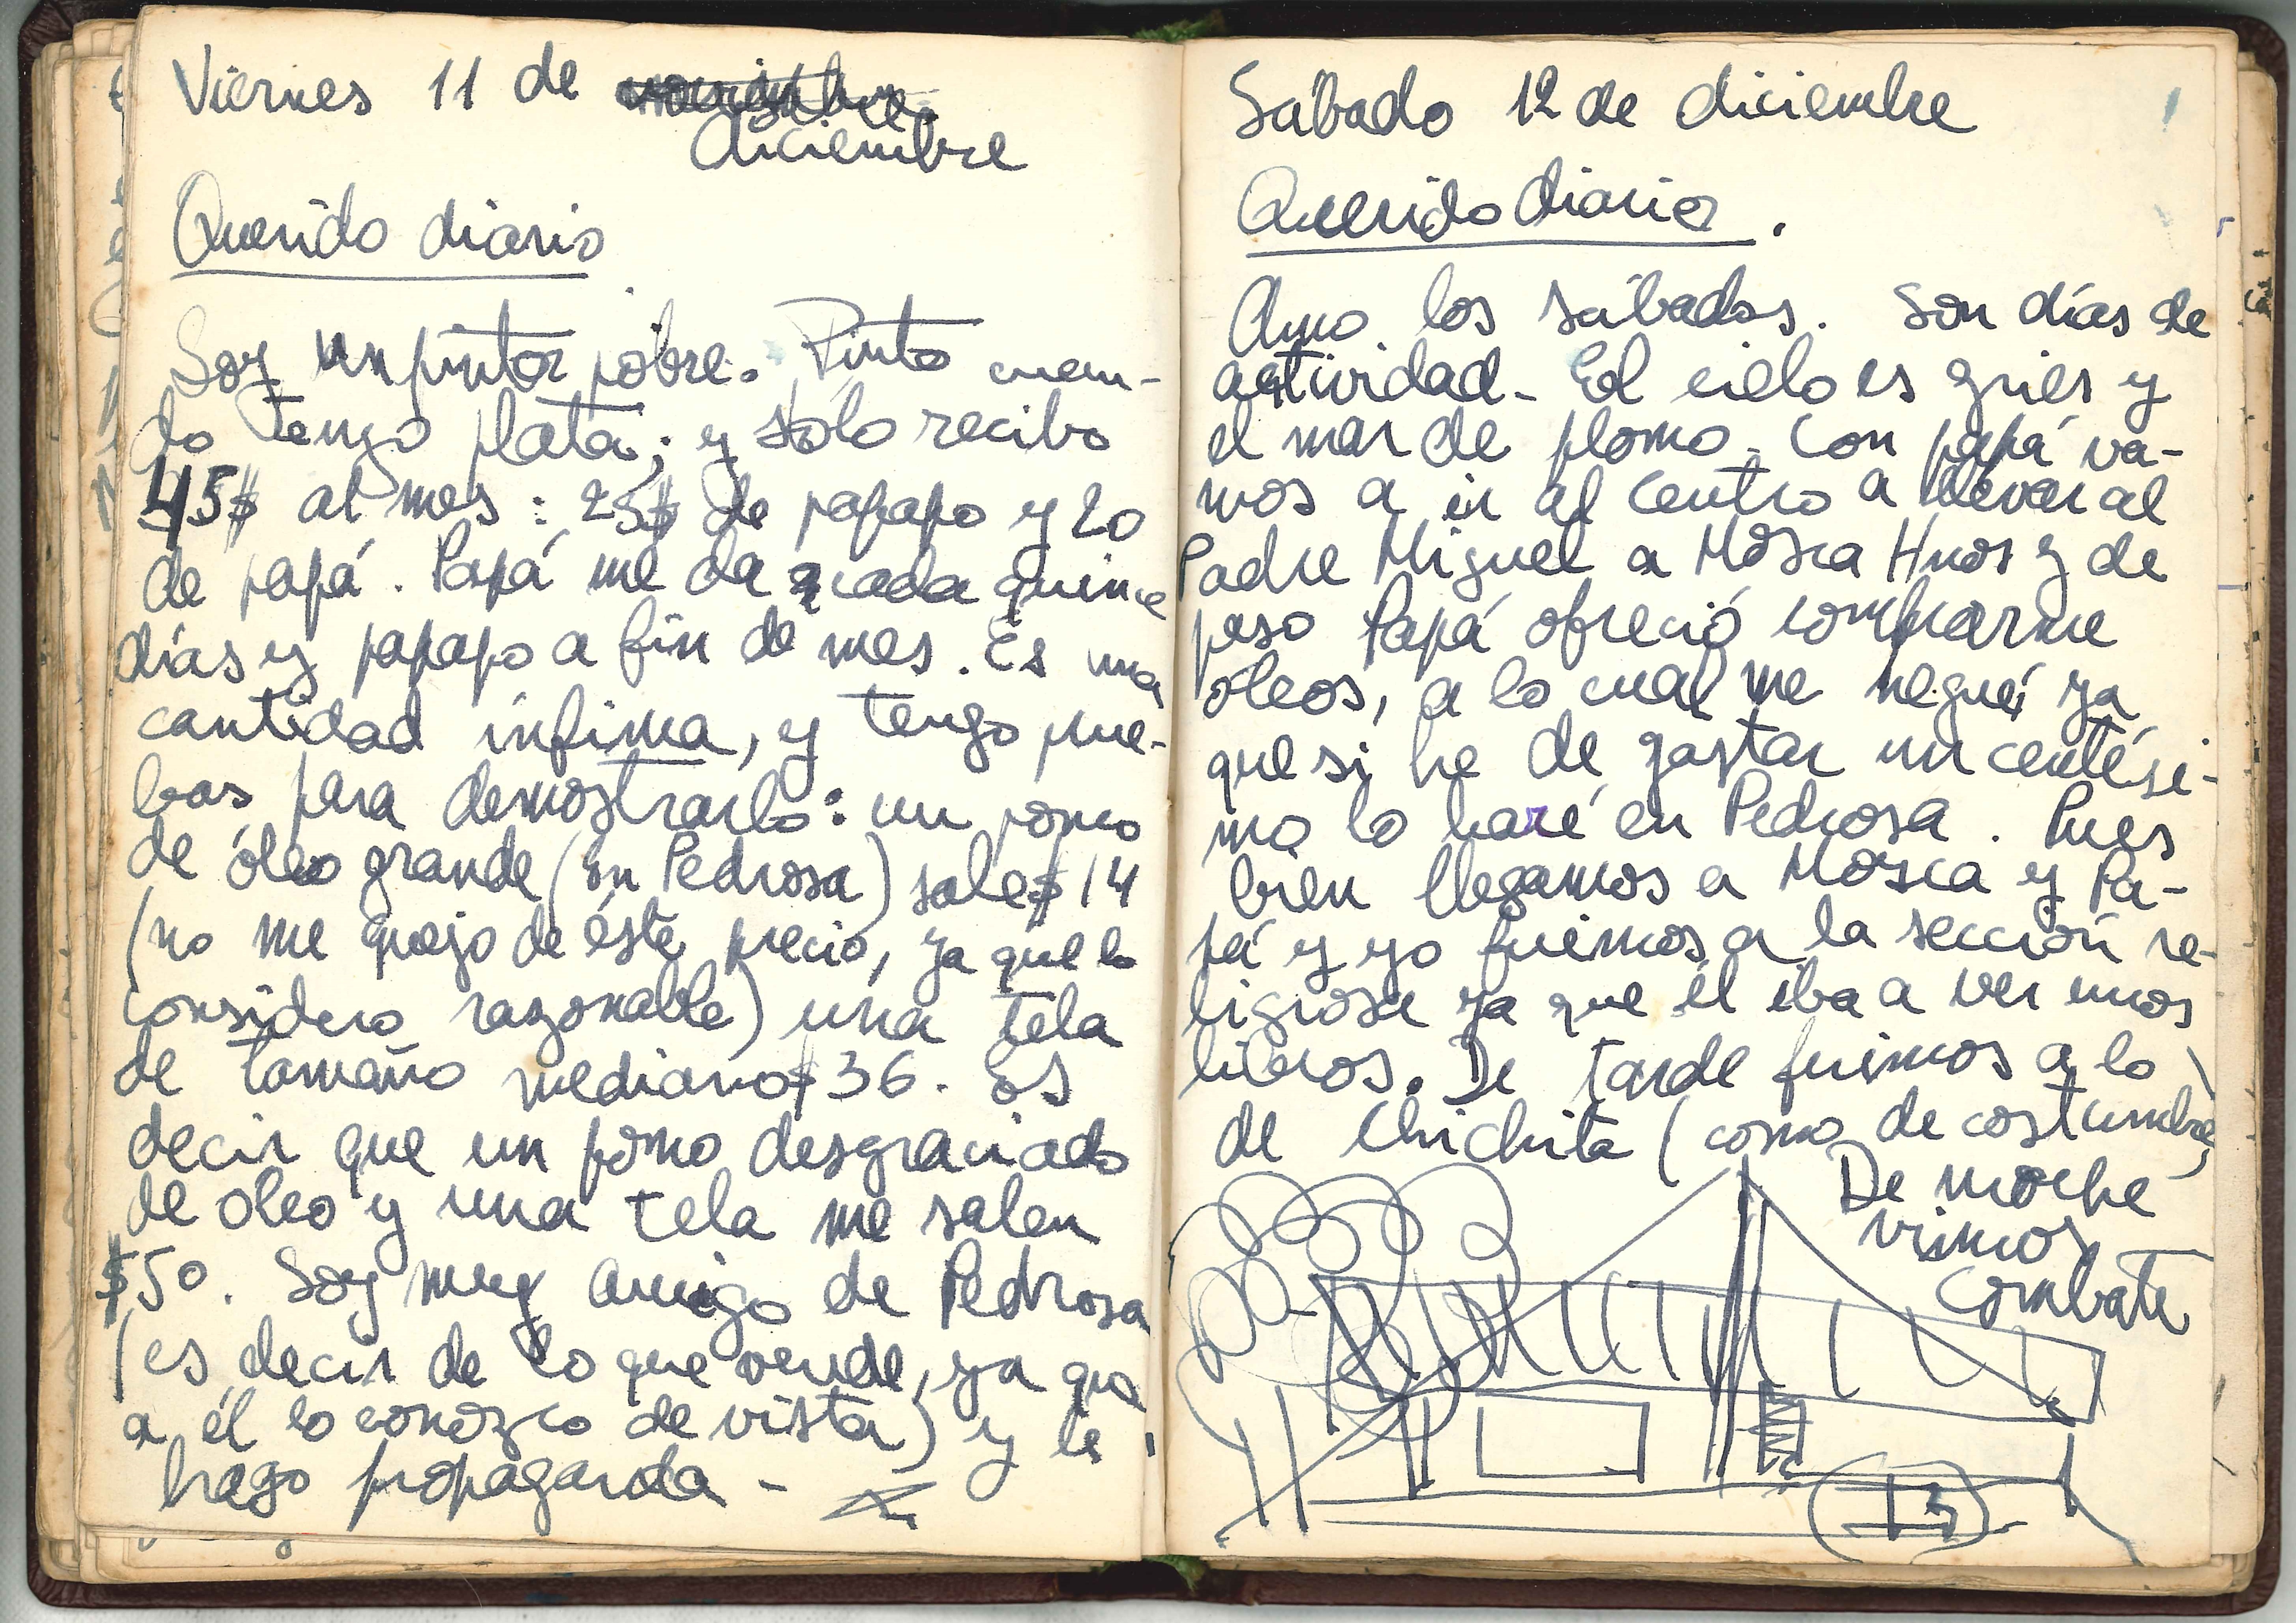 Viernes 11 de noviembre
diciembre
Querido diario
Soy un pintor pobre. Pinto cuan-
do tengo plata; y sólo recibo
45$ al mes: 25$ de papapo y 20
de papá. Papá me da cada quince
días y papapo a fin de mes. Es una
cantidad ínfima, y tengo prue-
bas para demostrarlo: un pomo
de óleo grande (en Pedrosa) sale $14
(no me quejo de éste precio, ya que lo
considero razonable) una tela
de tamaño mediano $36. Es
decir que un pomo desgraciado
de oleo y una tela me salen
$50. Soy muy amigo de Pedrosa
(es decir de lo que vende, ya que
a él lo conozco de vista) y le
hago propaganda -
Sábado 12 de diciembre
Querido diario.
Amo los sábados. Son días de
actividad - El cielo es gries y
el mar de plomo. Con papá va-
mos a ir al centro a llevar al
Padre Miguel a Mosca Hnos y de
paso Papá ofreció comprarme
óleos, a lo cual me negué ya
que si he de gastar un centési-
mo lo haré en Pedrosa. Pues
bien llegamos a Mosca y Pa-
pá y yo fuimos a la sección re-
ligiosa ya que él iba a ver unos
libros. De tarde fuimos a lo
de Chichita (como de costumbre)
De noche
vimos
Combate